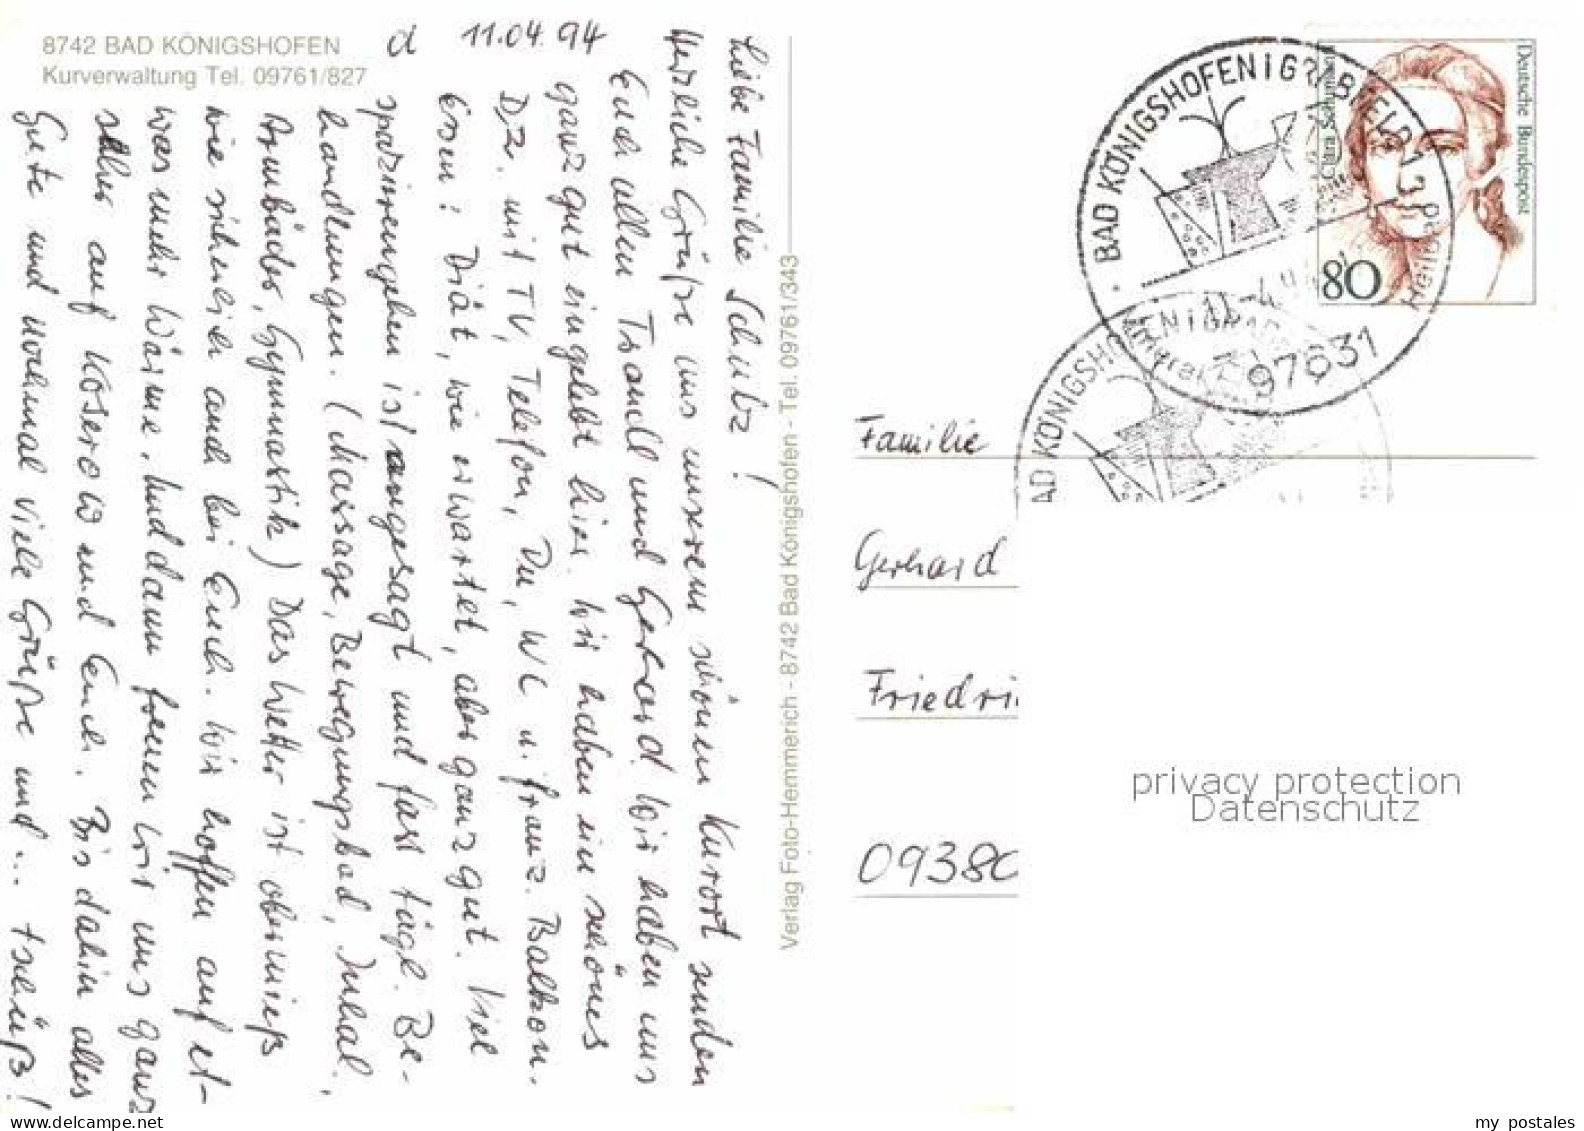 8742 BAD KÖNIGSHOFEN
Kurverwaltung Tel. 09761/827
d 11.04.94
Liebe Familie Schulz!
Herzliche Grüße aus unserem schönen Kurort senden
Euch allen Traudl und Gerhard. Wir haben uns
ganz gut eingelebt hier. Wir haben ein schönes
DZ. mit TV, Telefon, Du, WC u. franz. Balkon.
Essen: Diät, wie erwartet, aber ganz gut. Viel
spazierengehen ist angesagt und fast tägl. Be-
handlungen. (Massage, Bewegungsbad, Inhal.,
Armbäder, Gymnastik) Das Wetter ist obermieß
wie sicherlich auch bei Euch. Wir hoffen auf et-
was mehr Wärme. Und dann freuen wir uns ganz
sehr auf Koserow und Euch. Bis dahin alles
Gute und nochmal viele Grüße und... tschüß!
Verlag Foto-Hemmerich - 8742 Bad Königshofen - Tel. 09761/343
Deutsche Bundespost
80
BAD KÖNIGSHOFEN i GRABFELD 1
Heilquellen
11.-4
97631
AD KÖNIGSHOFEN i GRA
Familie
Gerhard
Friedri
09380
privacy protection
Datenschutz
my postales